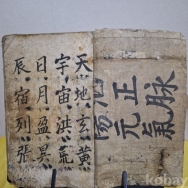 脉氣
正元
天地玄黃
宇宙洪荒
日月盈昃
辰宿列張
kobay